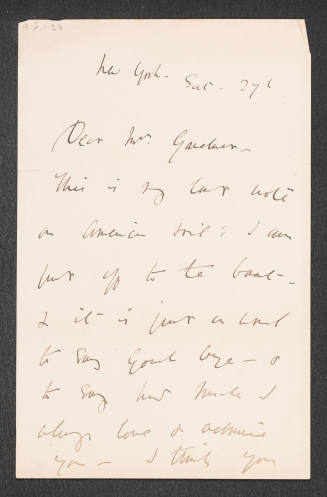 New York - Sat. 27th
Dear Mrs. Gardner -
This is my last note
on American soil: I am
just off to the boat -
& it is just a word
to say good bye - &
to say how much I
always love & admire
you - I think you